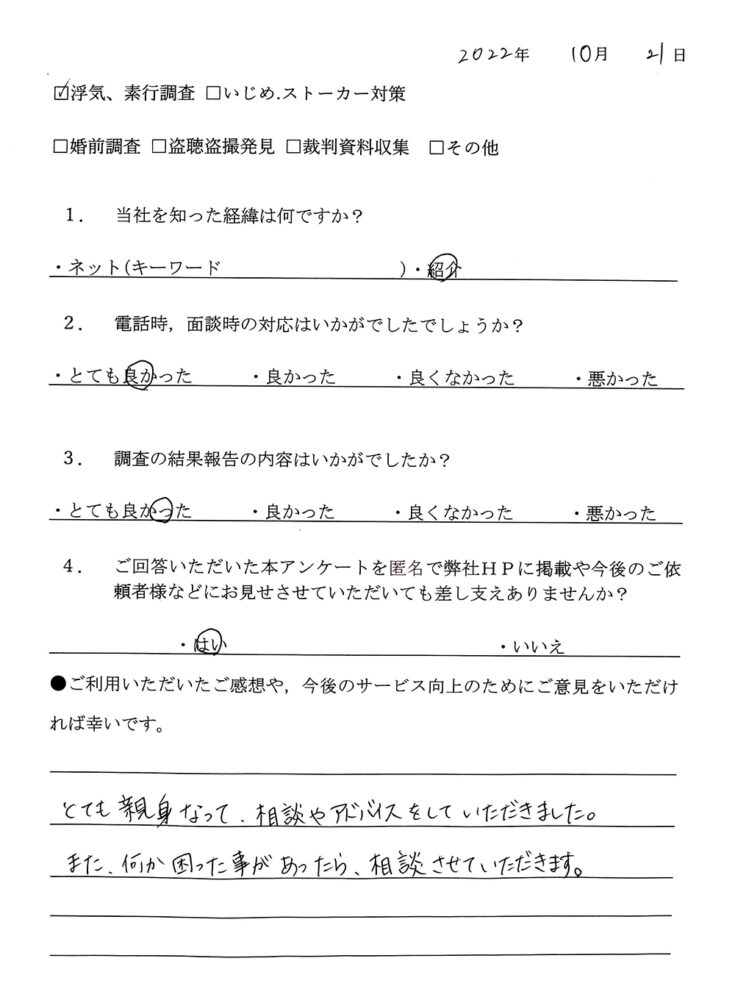 2022年 10月 21日
☑浮気、素行調査 □いじめ.ストーカー対策
□婚前調査 □盗聴盗撮発見 □裁判資料収集 □その他
1. 当社を知った経緯は何ですか？
・ネット(キーワード )・紹介
2. 電話時，面談時の対応はいかがでしたでしょうか？
・とても良かった ・良かった ・良くなかった ・悪かった
3. 調査の結果報告の内容はいかがでしたか？
・とても良かった ・良かった ・良くなかった ・悪かった
4. ご回答いただいた本アンケートを匿名で弊社ＨＰに掲載や今後のご依
頼者様などにお見せさせていただいても差し支えありませんか？
・はい ・いいえ
●ご利用いただいたご感想や，今後のサービス向上のためにご意見をいただけ
れば幸いです。
とても親身なって、相談やアドバイスをしていただきました。
また、何か困った事があったら、相談させていただきます。